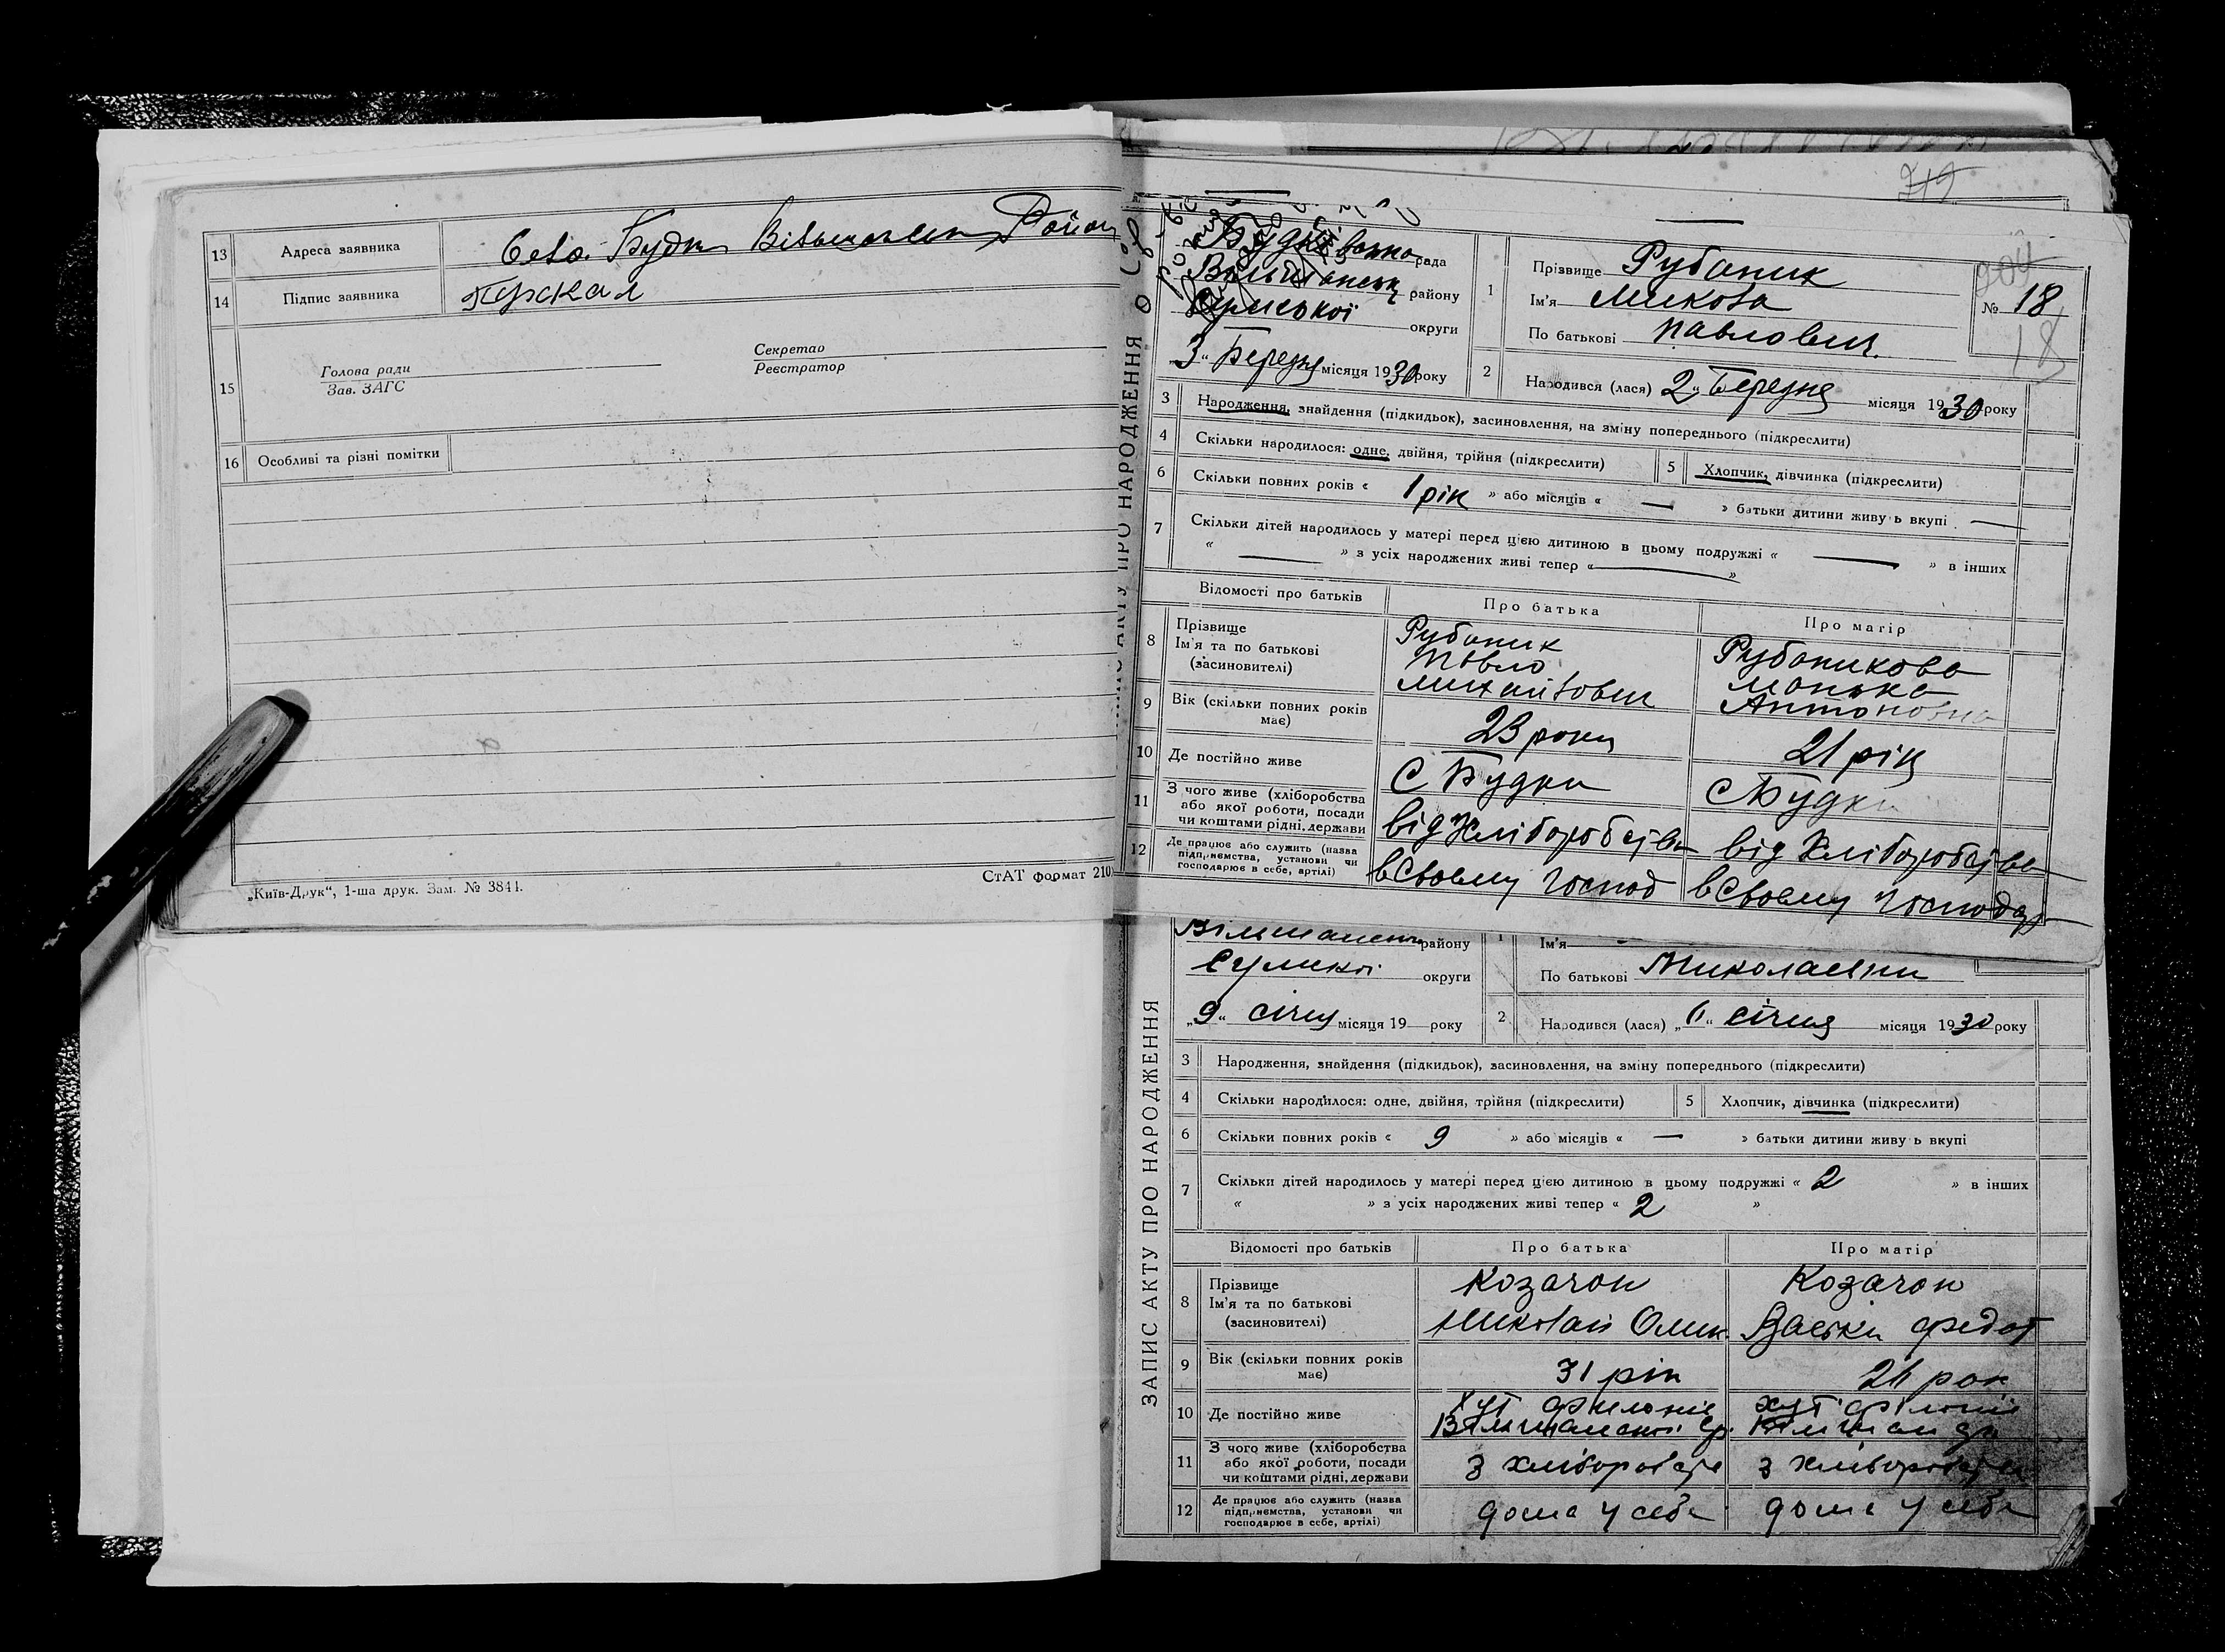 13 Адреса заявника Село Будки Вільшанськ Район
14 Підпис заявника
15 Голова ради
Зав. ЗАГС
Секретар
Реєстратор
16 Особливі та різні помітки
„Київ-Друк“, 1-ша друк. Зам. № 3844.
СтАТ формат 210
719
ЗАПИС АКТУ ПРО НАРОДЖЕННЯ
рада
Вільшанськ району
Сумської округи
„3“ Березня місяця 1930 року
1 Прізвище Рубаник
Ім'я Микола
По батькові Павлович
№ 18
18
2 Народився (лася) „2“ Березня місяця 1930 року
3 Народження, знайдення (підкидьок), засиновлення, на зміну попереднього (підкреслити)
4 Скільки народилося: одне, двійня, трійня (підкреслити) 5 Хлопчик, дівчинка (підкреслити)
6 Скільки повних років « 1 рік » або місяців « — » батьки дитини живуть вкупі —
7 Скільки дітей народилось у матері перед цією дитиною в цьому подружжі « — » в інших
« — » з усіх народжених живі тепер « — »
Відомості про батьків Про батька Про матір
8 Прізвище Ім'я та по батькові (засновителі)
Рубаник Павло Михайлович
Рубаникова Манька Антоновна
9 Вік (скільки повних років має) 23 роки 21 рік
10 Де постійно живе С Будки С Будки
11 З чого живе (хліборобства або якої роботи, посади чи коштами рідні, держави від Хліборобства від Хліборобства
12 Де працює або служить (назва підприємства, установи чи господарює в себе, артілі) в Своєму господ в Своєму господар
Вільшанськ району
Сумської округи
„9“ січня місяця 19 року
1 Ім'я
По батькові Миколаевни
2 Народився (лася) „6“ січня місяця 1930 року
ЗАПИС АКТУ ПРО НАРОДЖЕННЯ
3 Народження, знайдення (підкидьок), засиновлення, на зміну попереднього (підкреслити)
4 Скільки народилося: одне, двійня, трійня (підкреслити) 5 Хлопчик, дівчинка (підкреслити)
6 Скільки повних років « 9 » або місяців « — » батьки дитини живуть вкупі
7 Скільки дітей народилось у матері перед цією дитиною в цьому подружжі « 2 » в інших
« » з усіх народжених живі тепер « 2 »
Відомості про батьків Про батька Про матір
8 Прізвище Ім'я та по батькові (засиновителі)
Козачок Николай Омик.
Козачок Федот
9 Вік (скільки повних років має) 31 рік
10 Де постійно живе хут
11 З чого живе (хліборобства або якої роботи, посади чи коштами рідні, держави з хлібороб з хлібороб
12 Де працює або служить (назва підприємства, установи чи господарює в себе, артілі) дома у себе дома у себе